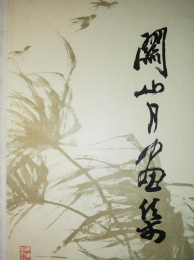 關山月画集